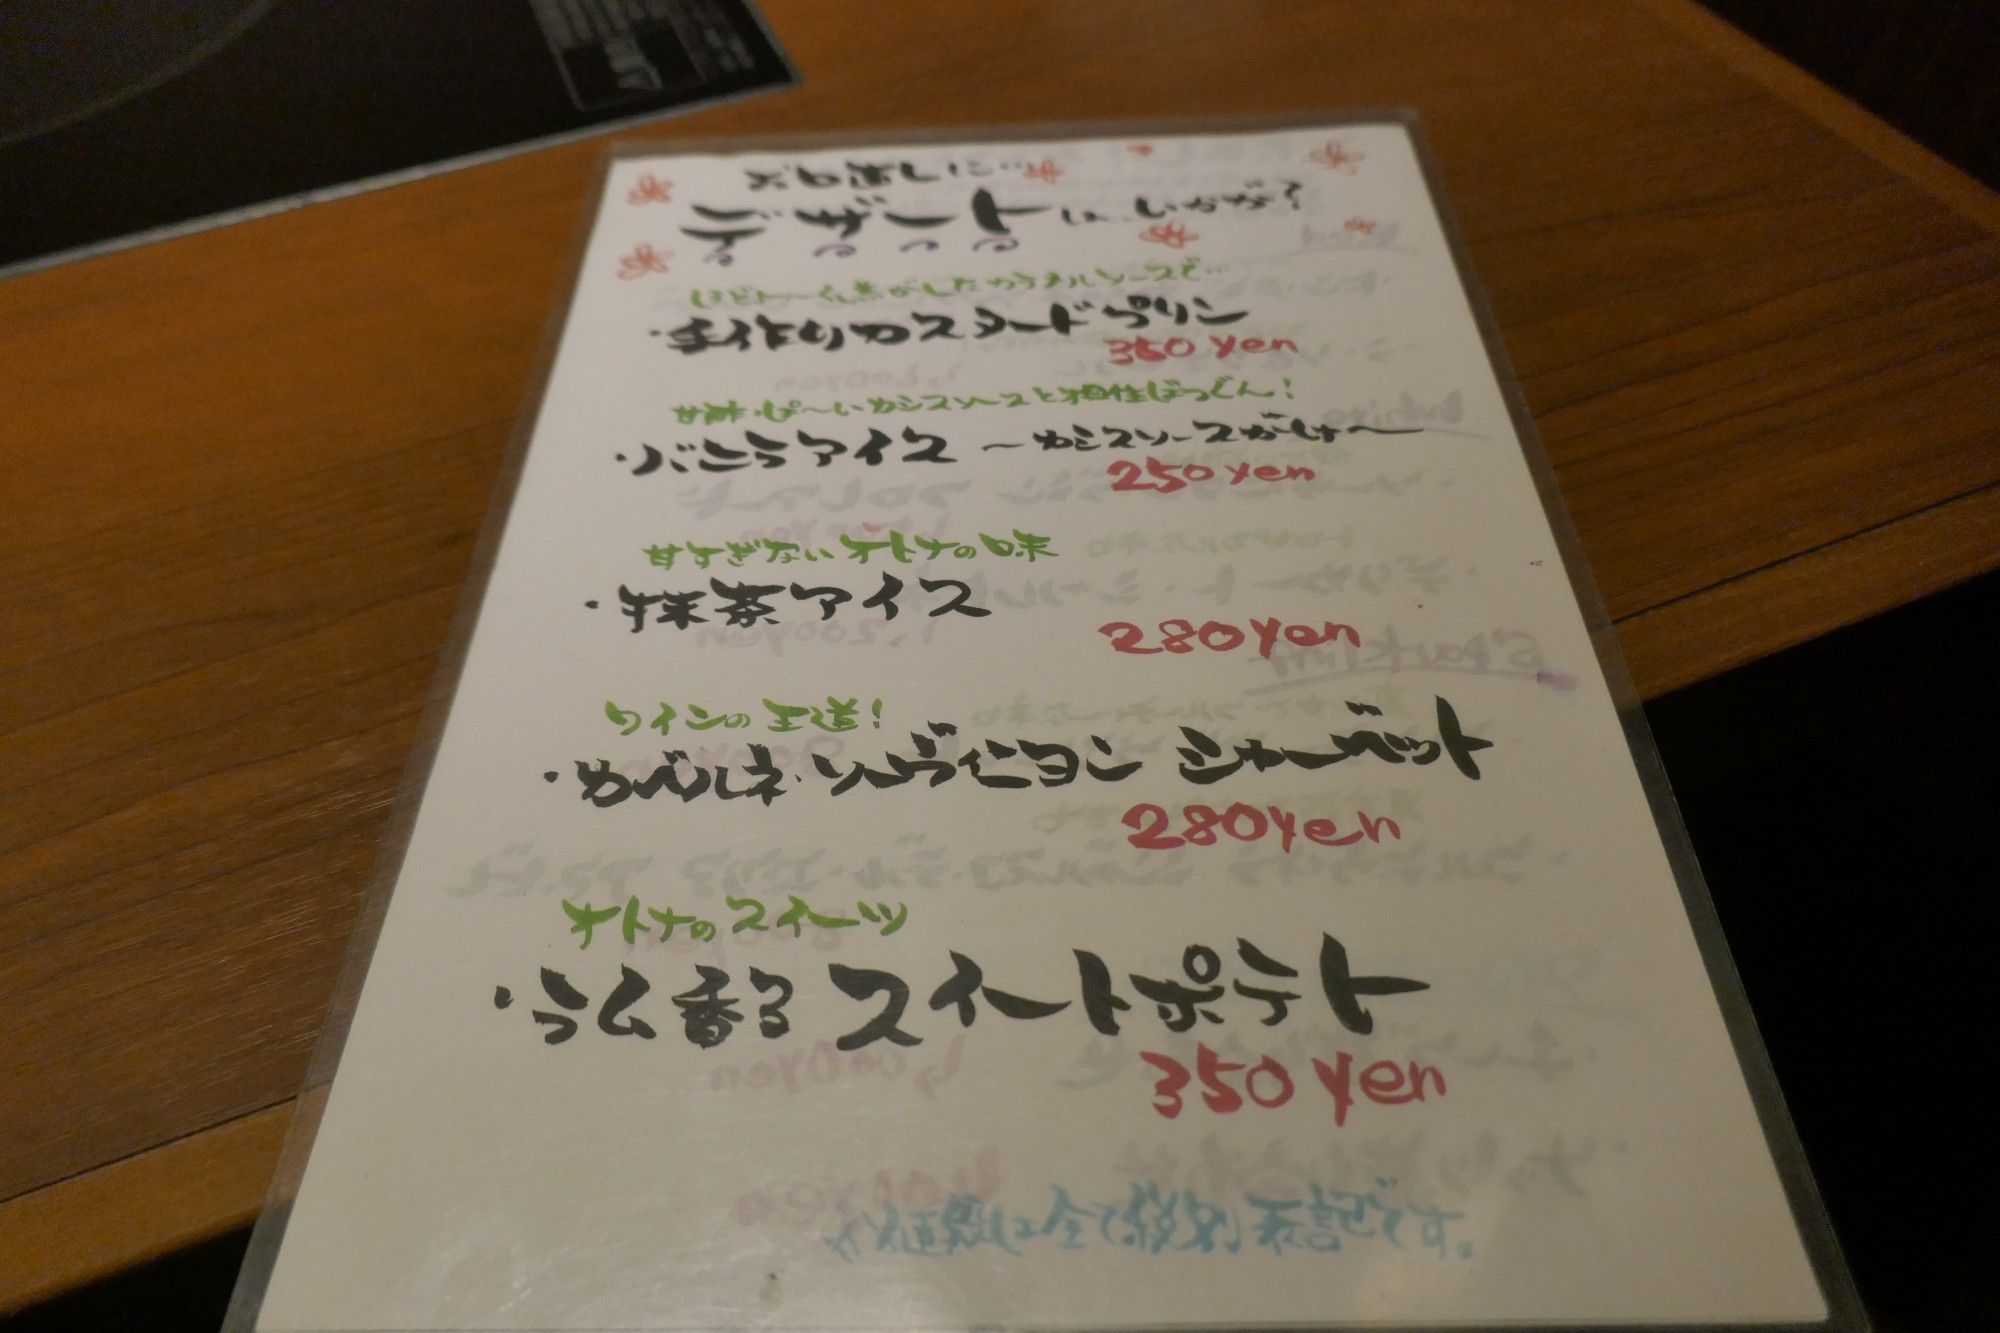 お口直しに…
デザートは、いかが？
ほどよーく焦がしたカラメルソースで…
・手作りカスタードプリン
350yen
甘酸っぱ〜いカシスソースと相性ばつぐん！
・バニラアイス 〜カシスソースがけ〜
250yen
甘すぎないオトナの味
・抹茶アイス
280yen
ワインの王道！
・カベルネ・ソーヴィニヨン シャーベット
280yen
オトナのスイーツ
・ラム香るスイートポテト
350yen
は全て税別表記です。